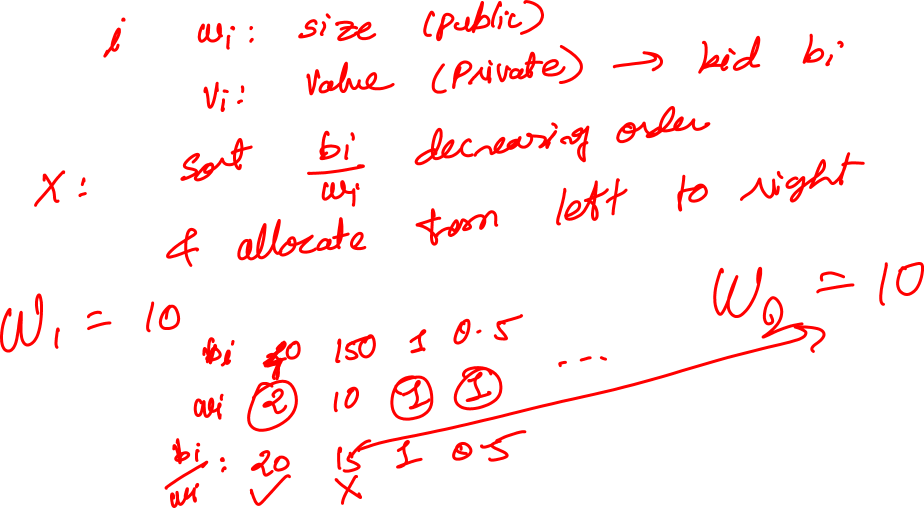 i wi: size (Public)
vi: Value (Private) → bid bi
X: Sort bi/wi decreasing order
& allocate from left to right
W1 = 10
W2 = 10
bi 40 150 1 0.5
wi 2 10 1 1 ...
bi/wi: 20 15 1 0.5
✓ X